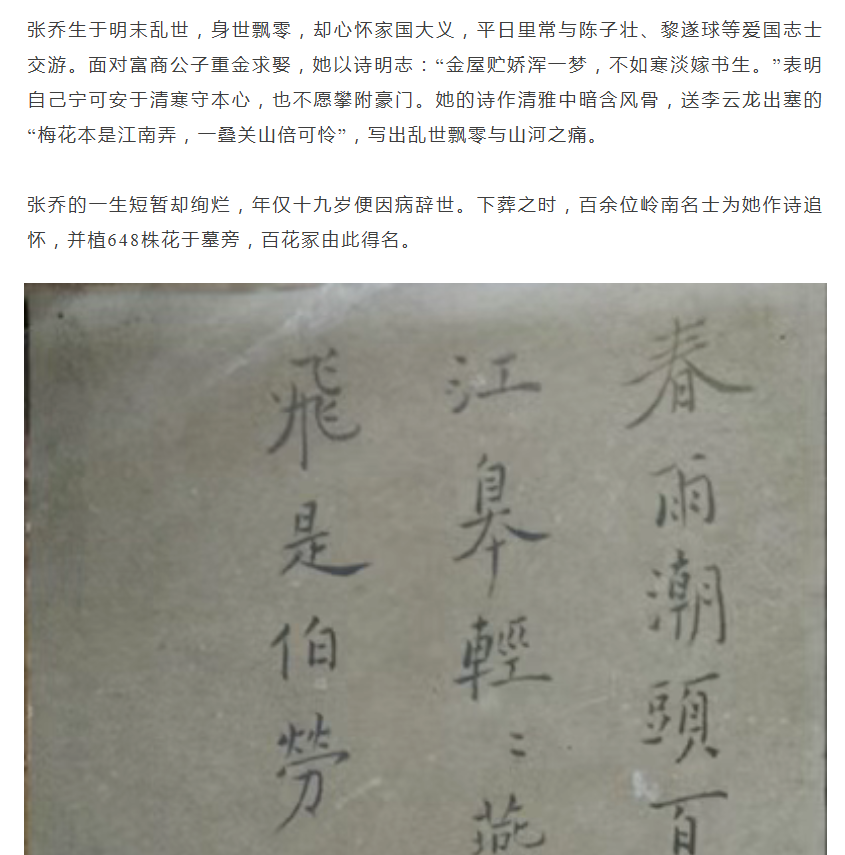 张乔生于明末乱世，身世飘零，却心怀家国大义，平日里常与陈子壮、黎遂球等爱国志士
交游。面对富商公子重金求娶，她以诗明志：“金屋贮娇浑一梦，不如寒淡嫁书生。”表明
自己宁可安于清寒守本心，也不愿攀附豪门。她的诗作清雅中暗含风骨，送李云龙出塞的
“梅花本是江南弄，一叠关山倍可怜”，写出乱世飘零与山河之痛。
张乔的一生短暂却绚烂，年仅十九岁便因病辞世。下葬之时，百余位岭南名士为她作诗追
怀，并植648株花于墓旁，百花冢由此得名。
春雨潮頭百
江皋輕〻燕
飛是伯勞